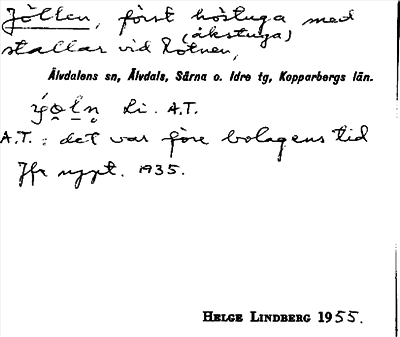 Jöllen, först höstuga med
(åkstuga)
stallar vid Rötnen,
Älvdalens sn, Älvdals, Särna o. Idre tg, Kopparbergs län.
Li. A.T.
A.T.: det var före bolagens tid
Jfr uppt. 1935.
HELGE LINDBERG 1955.